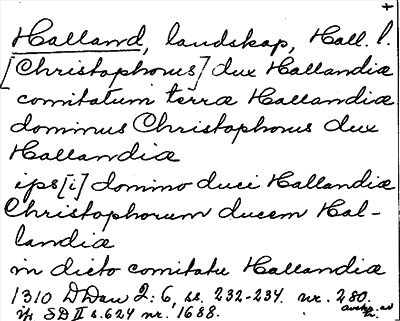 +
Halland, landskap, Hall. l.
[Christophorus] dux Hallandiæ
comitatum terræ Hallandiæ
dominus Christophorus dux
Hallandiæ
ips[i] domino duci Hallandiæ
Christophorum ducem Hal-
landiæ
in dicto comitatu Hallandiæ
1310 DDan 2: 6, ss. 232-234. nr. 280.
jfr SD II s. 624 nr. 1688.